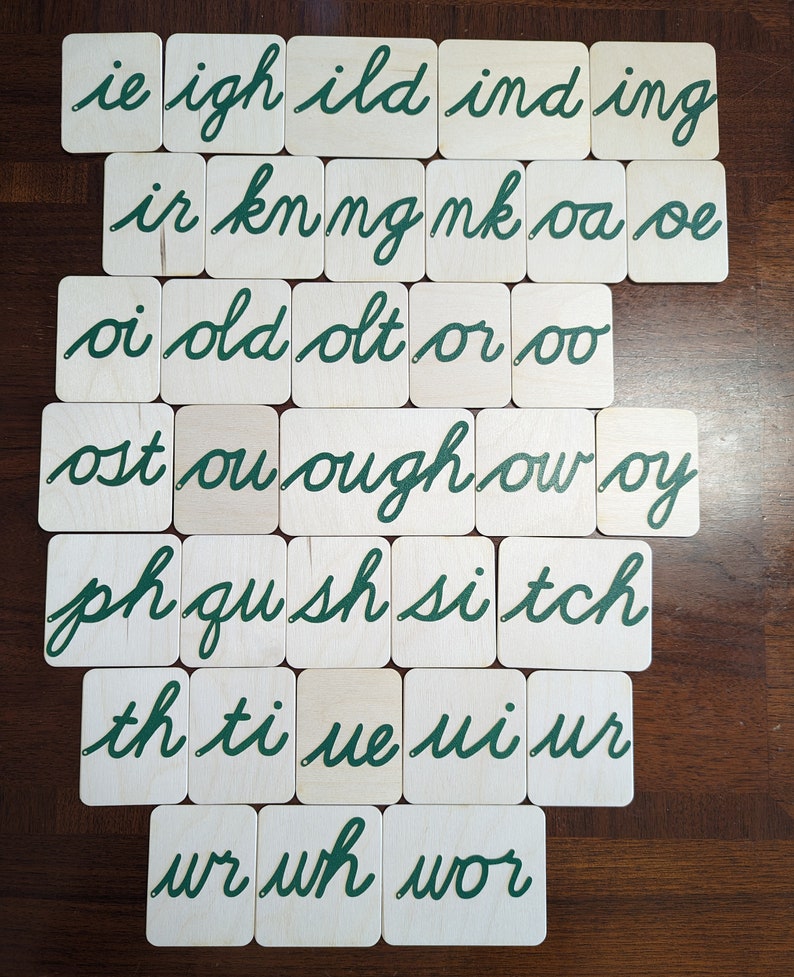 ie igh ild ind ing
ir kn ng nk oa oe
oi old olt or oo
ost ou ough ow oy
ph qu sh si tch
th ti ue ui ur
wr wh wor